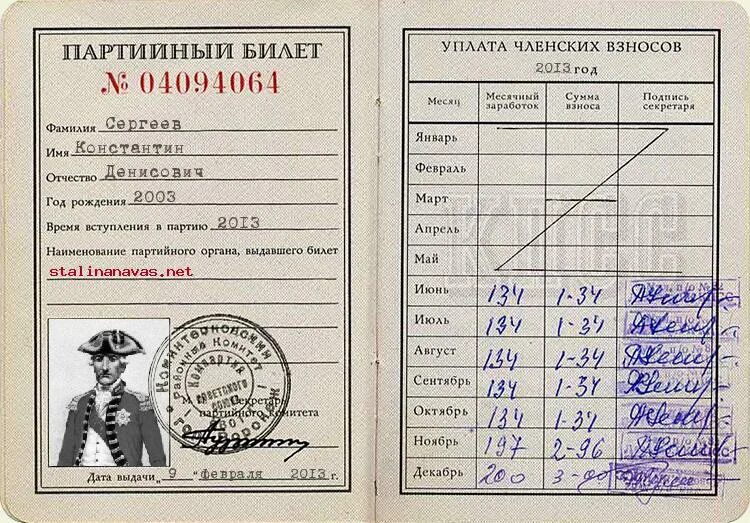 ПАРТИЙНЫЙ БИЛЕТ
№ 04094064
Фамилия Сергеев
Имя Константин
Отчество Денисович
Год рождения 2003
Время вступления в партию 2013
Наименование партийного органа, выдавшего билет
stalinanavas.net
Коминтерновский
Районный Комитет
Компартия
Советского
Союза
М
Секретарь
партийного комитета
Дата выдачи „ 9 " февраля 2013 г.
УПЛАТА ЧЛЕНСКИХ ВЗНОСОВ
2013 год
Месяц Месячный заработок Сумма взноса Подпись секретаря
КПСС
Январь
Февраль
Март
Апрель
Май
Июнь 134 1-34
Июль 134 1-34
Август 134 1-34
Сентябрь 134 1-34
Октябрь 134 1-34
Ноябрь 197 2-96
Декабрь 200